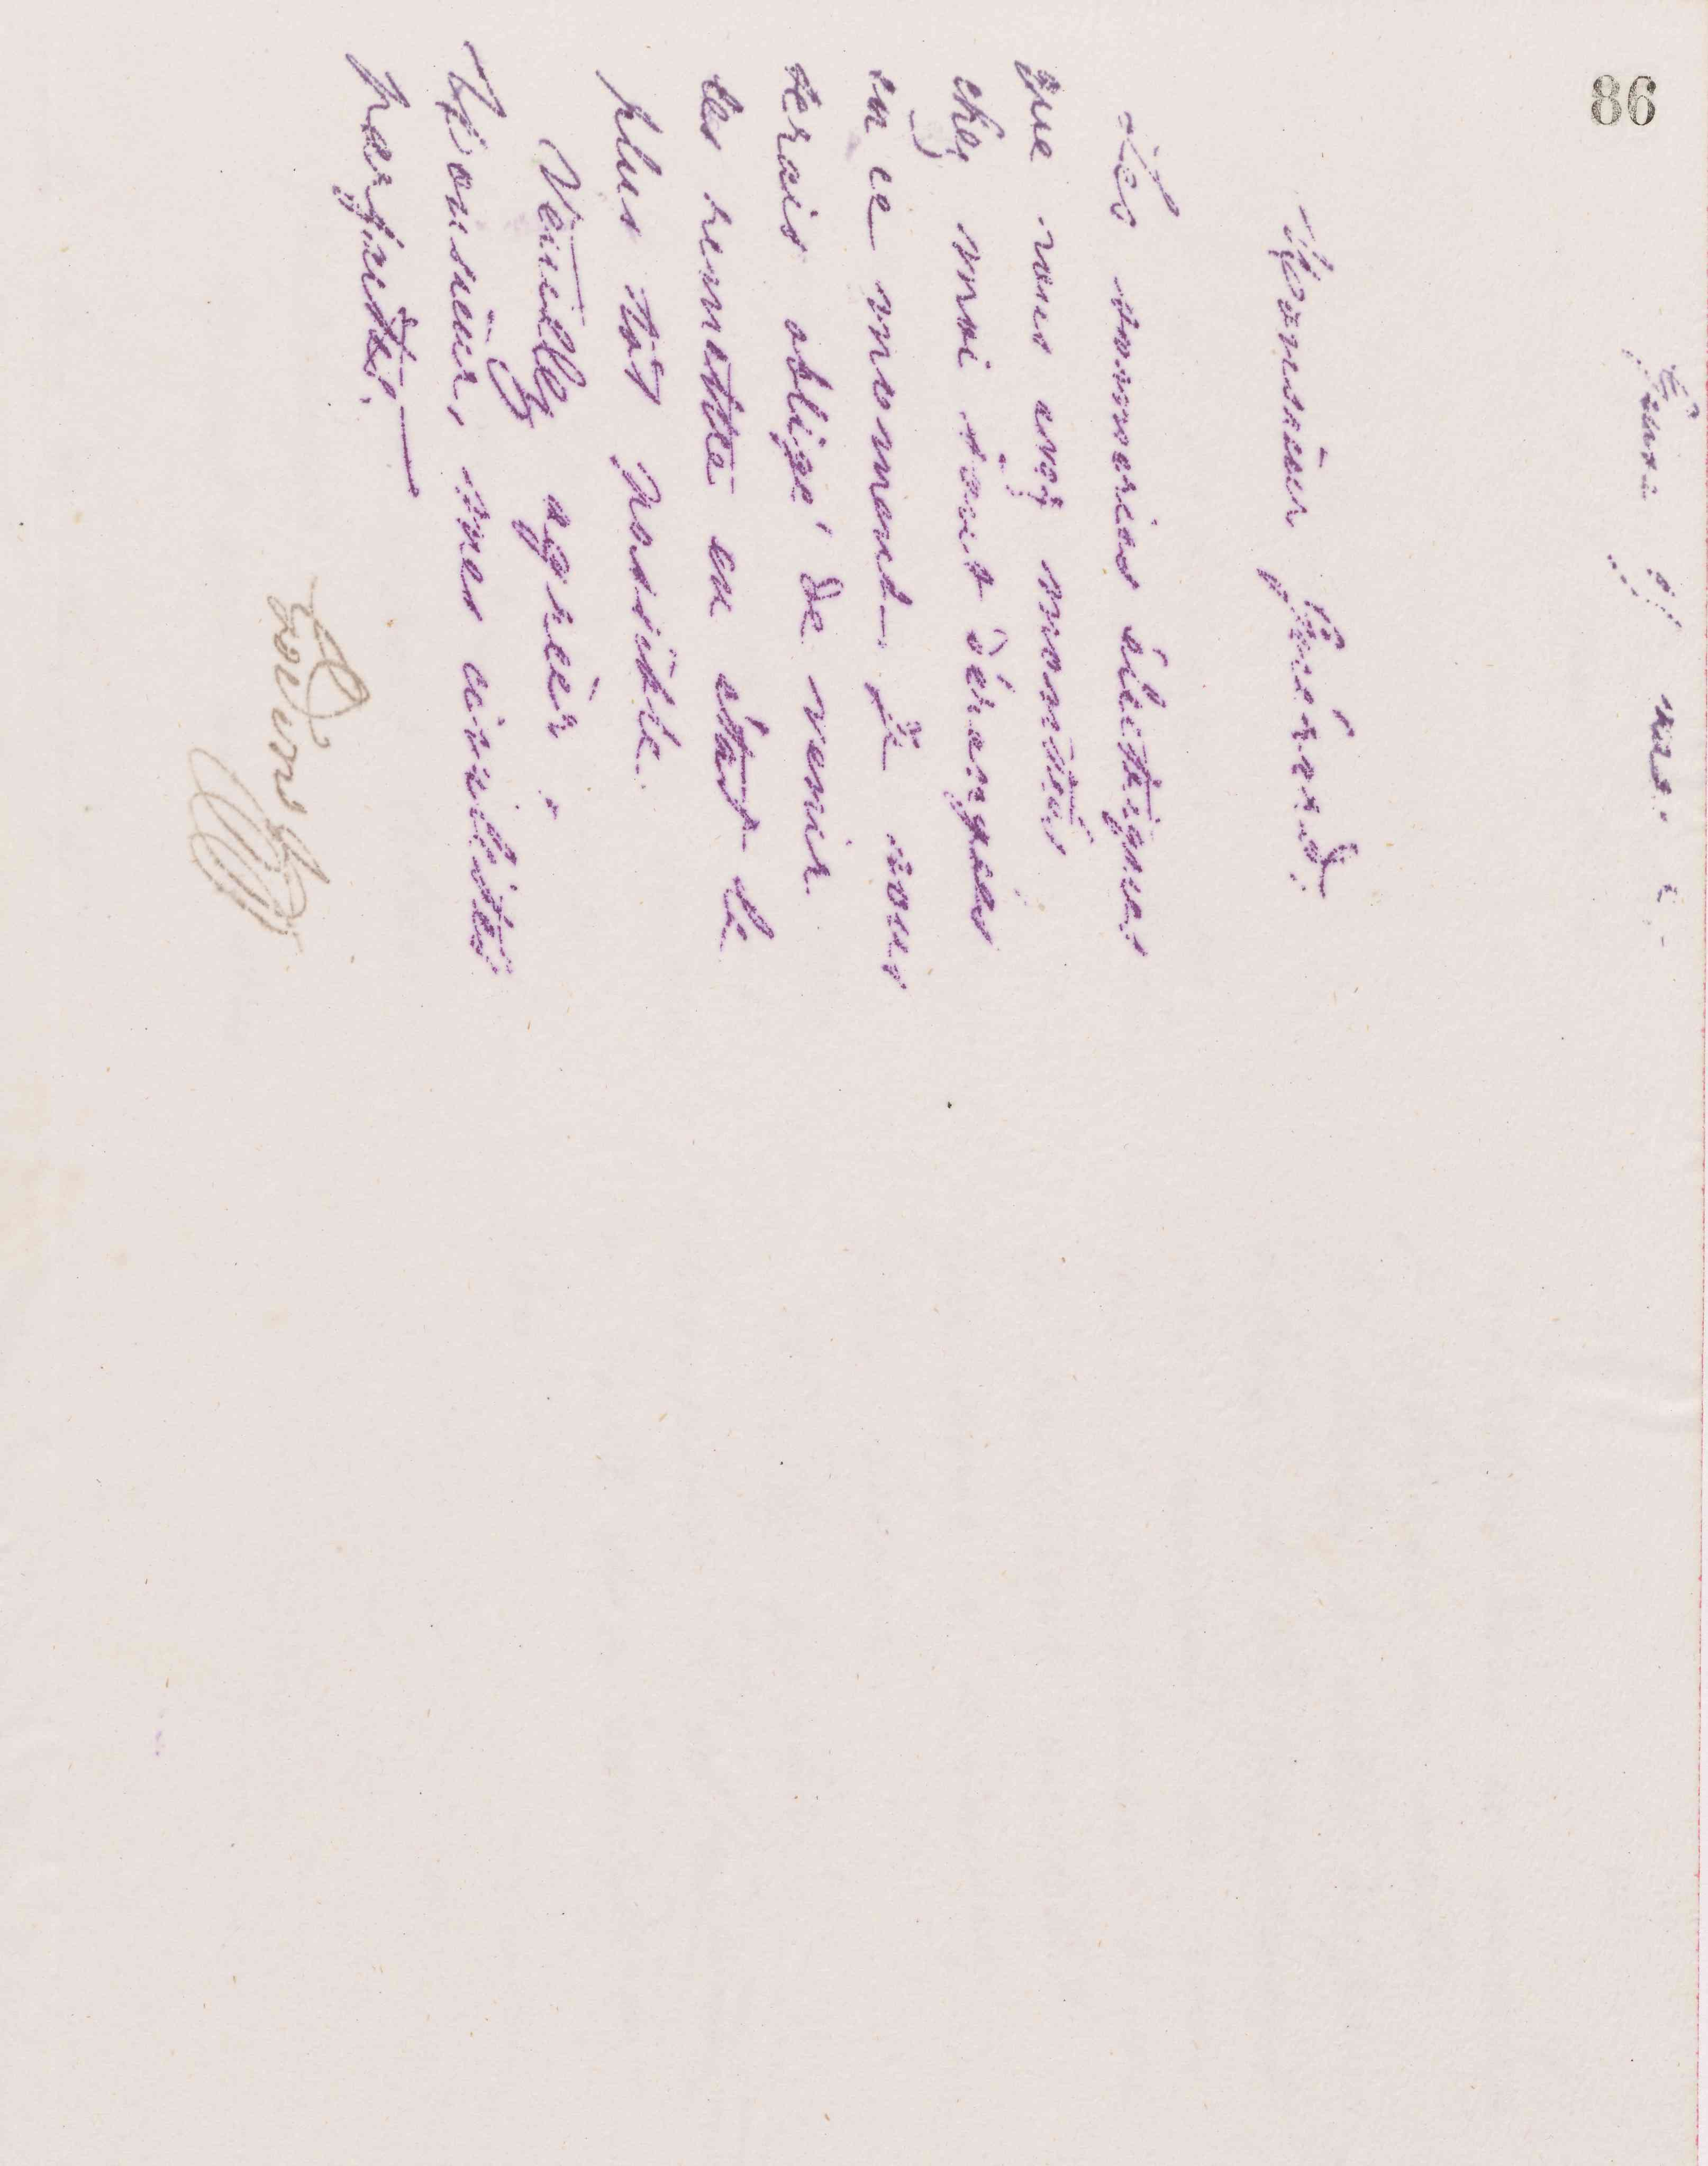 86
Guise
Monsieur Guérard.
Les sonneries électriques
que vous avez montées
chez moi sont dérangées
en ce moment. Je vous
serais obligé de venir
les remettre en état le
plus tôt possible.
Veuillez agréer,
Monsieur, mes civilités
parfaites.
Godin